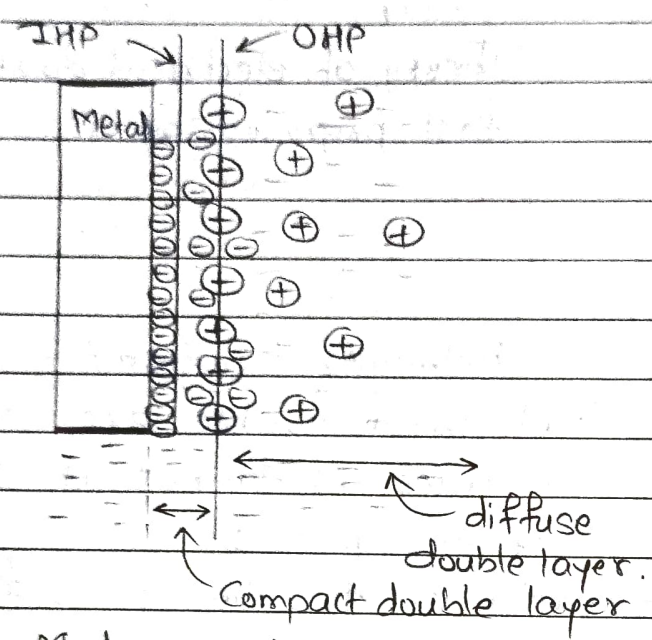 IHP OHP
Metal
diffuse
double layer.
Compact double layer